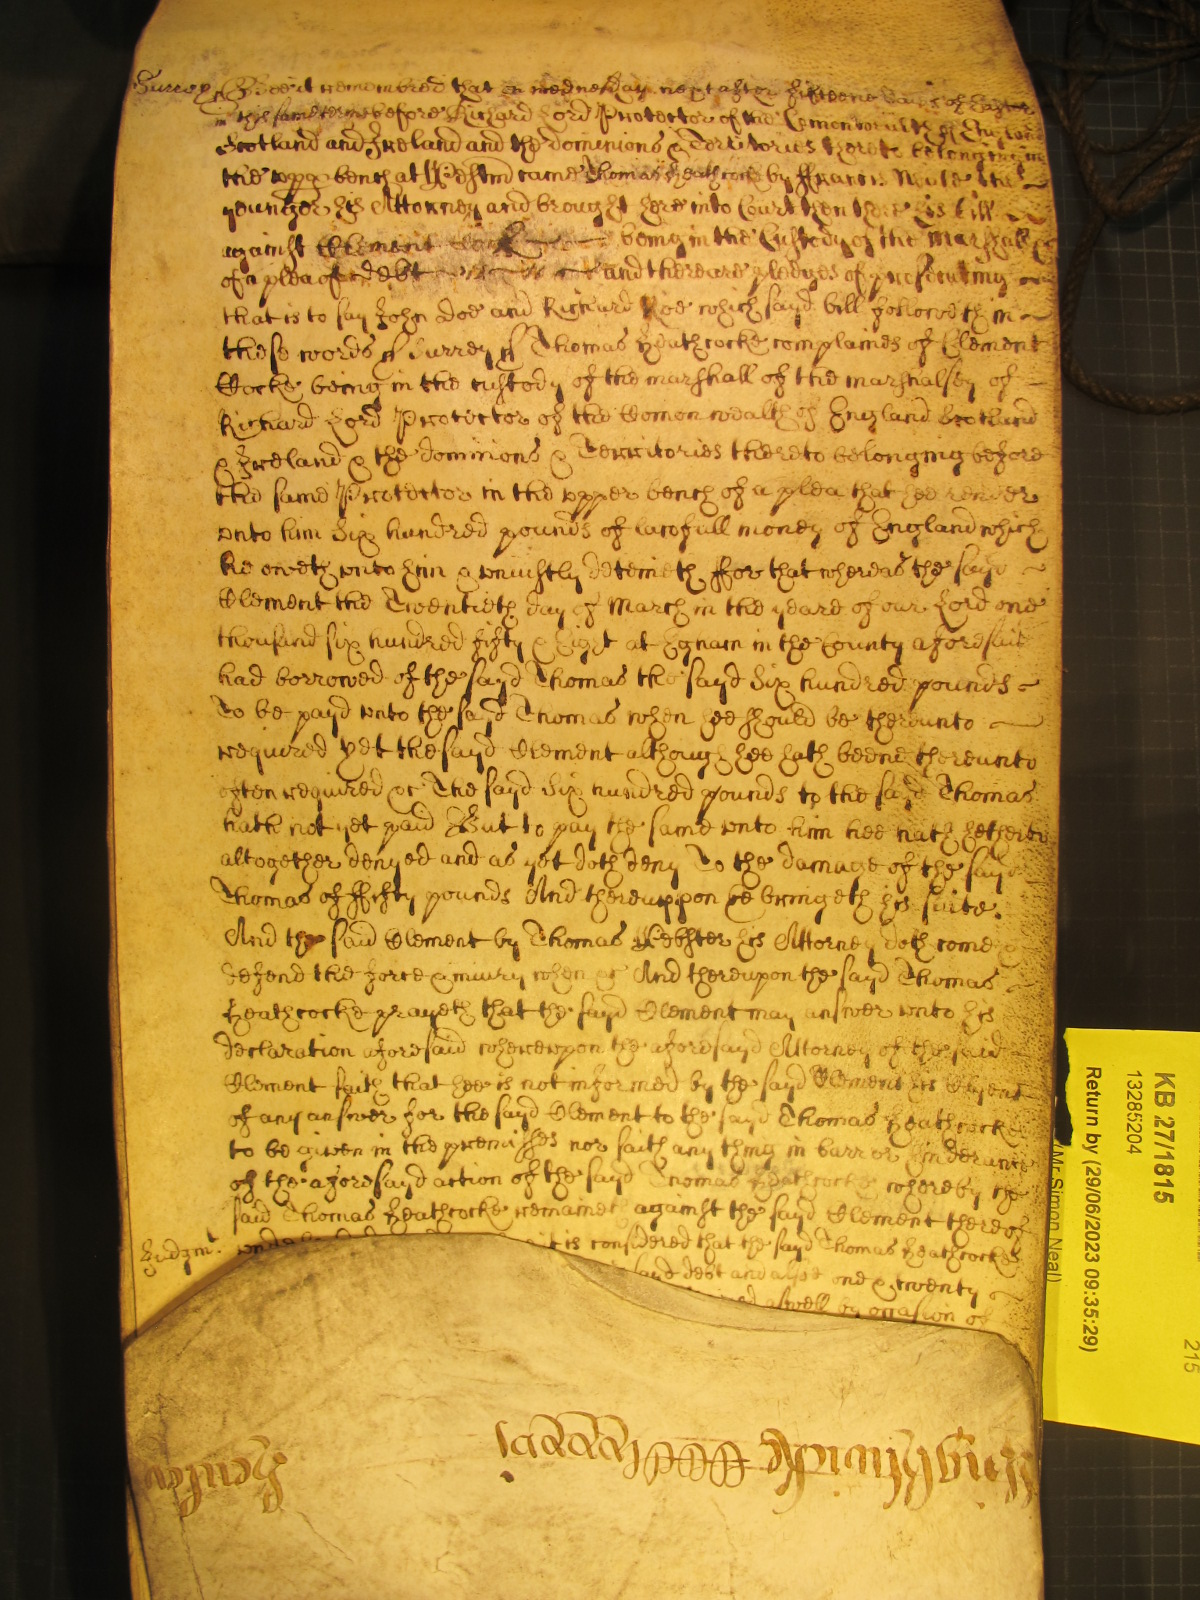 Surrey ss Bee it remembred that on wednesday next after fifteene daies of Easter
in this same terme before Richard Lord Protector of the Comonwealth of England
Scotland and Ireland and the dominions & Territories thereto belonging in
the upp bench at Westmr came Thomas Heathcocke by ffrancis the
younger his Attorney and brought here into Court then there his bill
against Clement being in the Custody of the Marshall
of a plea of debt and there are pledges of prosecuting
that is to say John Doe and Richard Roe which sayd bill followeth in
these words ss Surrey ss Thomas Heathcocke complaines of Clement
Cocke being in the custody of the marshall of the marshalsey of
Richard Lord Protector of the Comonwealth of England Scotland
& Ireland & the dominions & Territories thereto belonging before
the same Protector in the upper bench of a plea that hee render
unto him Six hundred pounds of lawfull money of England which
he oweth unto him & uniustly deteineth ffor that whereas the sayd
Clement the Twentieth day of March in the yeare of our Lord one
thousand six hundred fifty & Eight at Egham in the County aforesaid
had borrowed of the sayd Thomas the sayd Six hundred pounds
To be payd unto the sayd Thomas when hee should be thereunto
required yet the sayd Clement although hee hath beene thereunto
often required &c The sayd Six hundred pounds to the sayd Thomas
hath not yet paid But to pay the same unto him hee hath hetherto
altogether denyed and as yet doth deny To the damage of the sayd
Thomas of ffifty pounds And thereuppon he bringeth his suite.
And the said Clement by Thomas Webster his Attorney doth come &
defend the force & iniury when &c And thereupon the sayd Thomas
Heathcocke prayeth that the sayd Clement may answer unto his
declaration aforesaid whereupon the aforesayd Attorney of the said
Clement saith that hee is not informed by the sayd Clement his Clyent
of any answer for the sayd Clement to the sayd Thomas Heathcocke
to be given in the premisses nor saith any thing in barr or hinderance
of the aforesayd action of the sayd Thomas Heathcocke whereby the
said Thomas Heathcocke remaineth against the sayd Clement thereof
Judgmt. it is considered that the sayd Thomas Heathcocke
sayd debt and alsoe one & twenty
aswell by occasion of
KB 27/1815
13285204
Return by (29/06/2023 09:35:29)
(Mr Simon Neal)
215